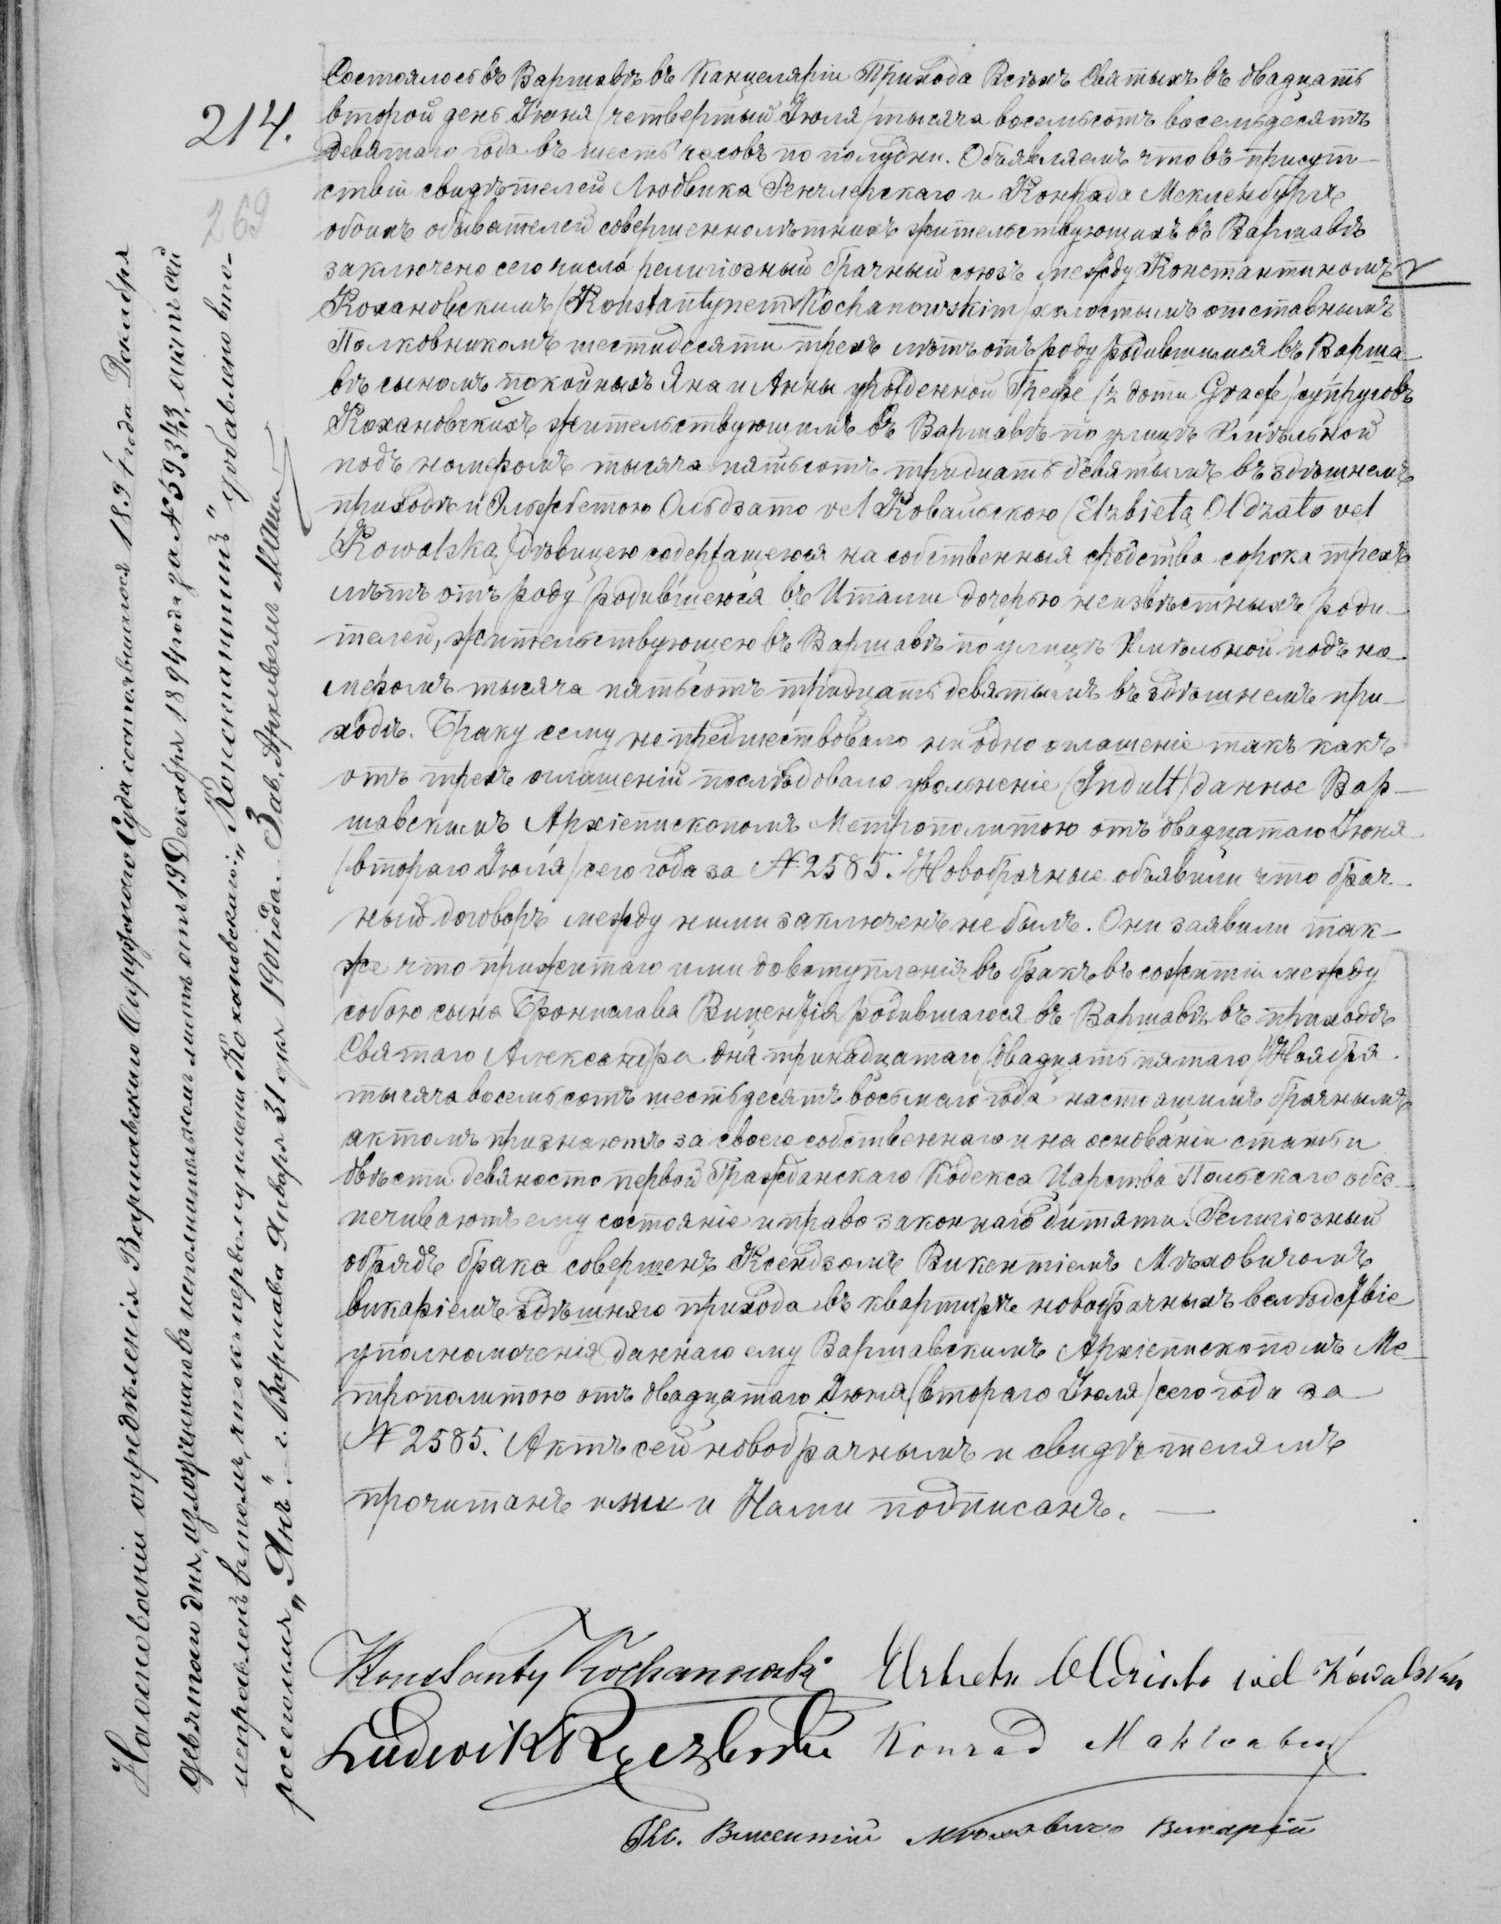 214.
269
Состоялось въ Варшавѣ въ Канцеляріи Прихода Всѣхъ Святыхъ въ двадцать
второй день Іюня /четвертый Іюля/ тысяча восемьсотъ восемьдесятъ
девятаго года въ шесть часовъ по полудни. Объявляемъ что въ присут-
ствіи свидѣтелей Людвика и Конрада Мекленбургъ
обоихъ обывателей совершеннолѣтнихъ жительствующихъ въ Варшавѣ
заключено сего числа религіозный брачный союзъ между Константиномъ √
Кохановскимъ /Konstantynem Kochanowskim/ холостымъ отставнымъ
Полковникомъ шестидесяти трехъ лѣтъ отъ роду родившимся въ Варша-
вѣ сыномъ покойныхъ Яна и Анны урожденной Грефе /z domu Graefe/ супруговъ
Кохановскихъ жительствующимъ въ Варшавѣ по улицѣ Хмѣльной
подъ номеромъ тысяча пятьсотъ тридцать девятымъ въ здѣшнемъ
приходѣ и Эльжбетою Ольдзато vel Ковальскою /Elżbietą Oldzato vel
Kowalską/ дѣвицею содержащеюся на собственныя средства сорока трехъ
лѣтъ отъ роду родившеюся въ Италии дочерью неизвѣстныхъ роди-
телей, жительствующею въ Варшавѣ по улицѣ Хмѣльной подъ но-
меромъ тысяча пятьсотъ тридцать девятымъ въ здѣшнемъ при-
ходѣ. Браку сему не предшествовало ни одно оглашеніе такъ какъ
отъ трехъ оглашеній послѣдовало увольненіе /Indult/ данное Вар-
шавскимъ Архіепископомъ Метрополитою отъ двадцатаго Іюня
/втораго Іюля/ сего года за № 2585. Новобрачные объявили что брач-
ный договоръ между ними заключенъ не былъ. Они заявили так-
же что прижитаго ими до вступленія въ бракъ въ сожитіи между
собою сына Бронислава Виценція родившагося въ Варшавѣ въ приходѣ
Святаго Александра дня тринадцатаго /двадцать пятаго/ Ноября
тысяча восемьсотъ шестьдесятъ восьмаго года настоящимъ брачнымъ
актомъ признаютъ за своего собственнаго и на основаніи статьи
двѣсти девяносто первой Гражданскаго Кодекса Царства Польскаго обез-
печиваютъ ему состояніе и право законнаго дитяти. Религіозный
обрядъ брака совершенъ Ксендзомъ Викентіемъ Мѣховичомъ
викаріемъ здѣшняго прихода въ квартирѣ новобрачныхъ вслѣдствіе
уполномоченія даннаго ему Варшавскимъ Архіепископомъ Ме-
трополитою отъ двадцатаго Іюня /втораго Іюля/ сего года за
№ 2585. Актъ сей новобрачнымъ и свидѣтелямъ
прочитанъ ими и Нами подписанъ. —
Konstanty Kochanowski Elżbieta Oldziato vel Kowalska
Ludwik Konrad
Кс. Викентій Мѣховичъ Викарій
На основаніи опредѣленія Варшавскаго Окружнаго Суда состоявшагося 18 года Декабря
девятаго дня, изложеннаго въ исполнительномъ листѣ отъ 19 Декабря 18 года за № 59343, актъ сей
исправленъ въ томъ, что къ первому имени Кохановскаго „Константинъ" добавлено вто-
рое имя „Янъ". г. Варшава Января 31 дня 1901 года. Зав. Архивомъ